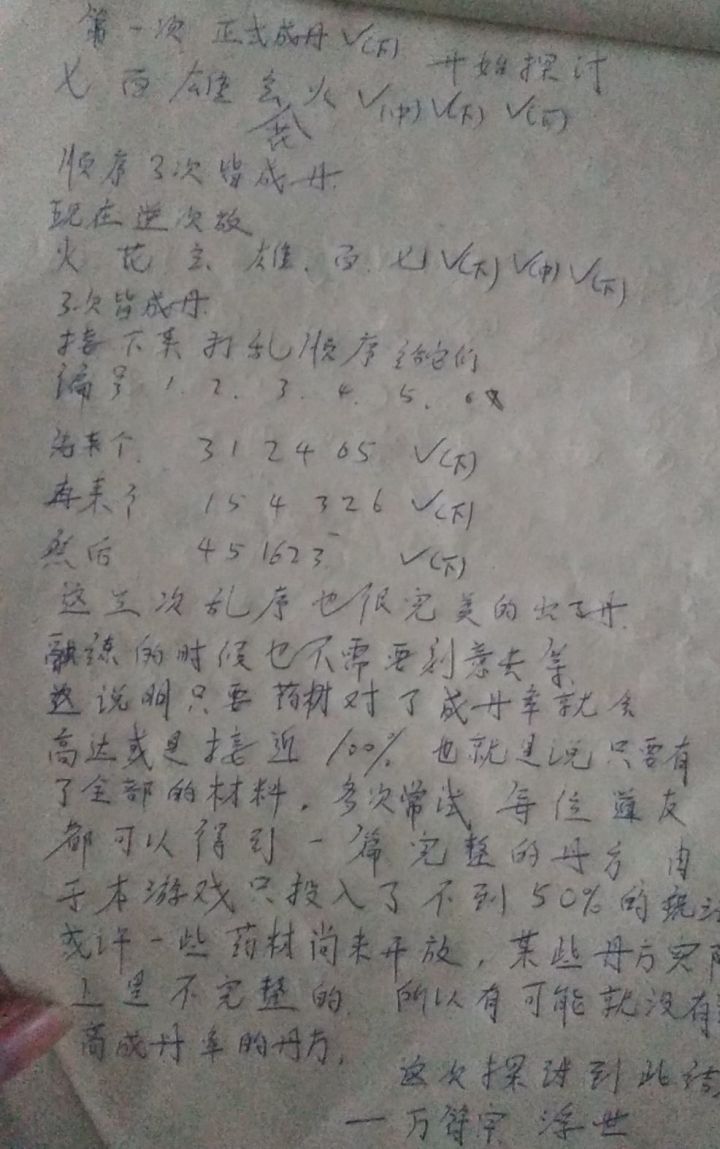 第一次 正式成丹 √(下) 开始探讨
七 百 雄 玄 火 √(中) √(下) √(下)
花
顺序3次皆成丹.
现在逆次放
火 花 玄 雄. 百. 七 √(下) √(中) √(下)
3次皆成丹.
接下来打乱顺序给它们
编号 1. 2. 3. 4. 5. 6
先来个 3 1 2 4 6 5 √(下)
再来个 1 5 4 3 2 6 √(下)
然后 4 5 1 6 2 3 √(下)
这三次乱序也很完美的出了丹.
融练的时候也不需要刻意去等
这说明只要药材对了成丹率就会
高达或是接近100% 也就是说只要有
了全部的材料, 多次常试 每位道友
都可以得到一篇完整的丹方 由
于本游戏只投入了不到50%的
或许一些药材尚未开放, 某些丹方实际
上是不完整的. 所以有可能就没有
高成丹率的丹方,
这次探讨到此结
一万符宗 浮世